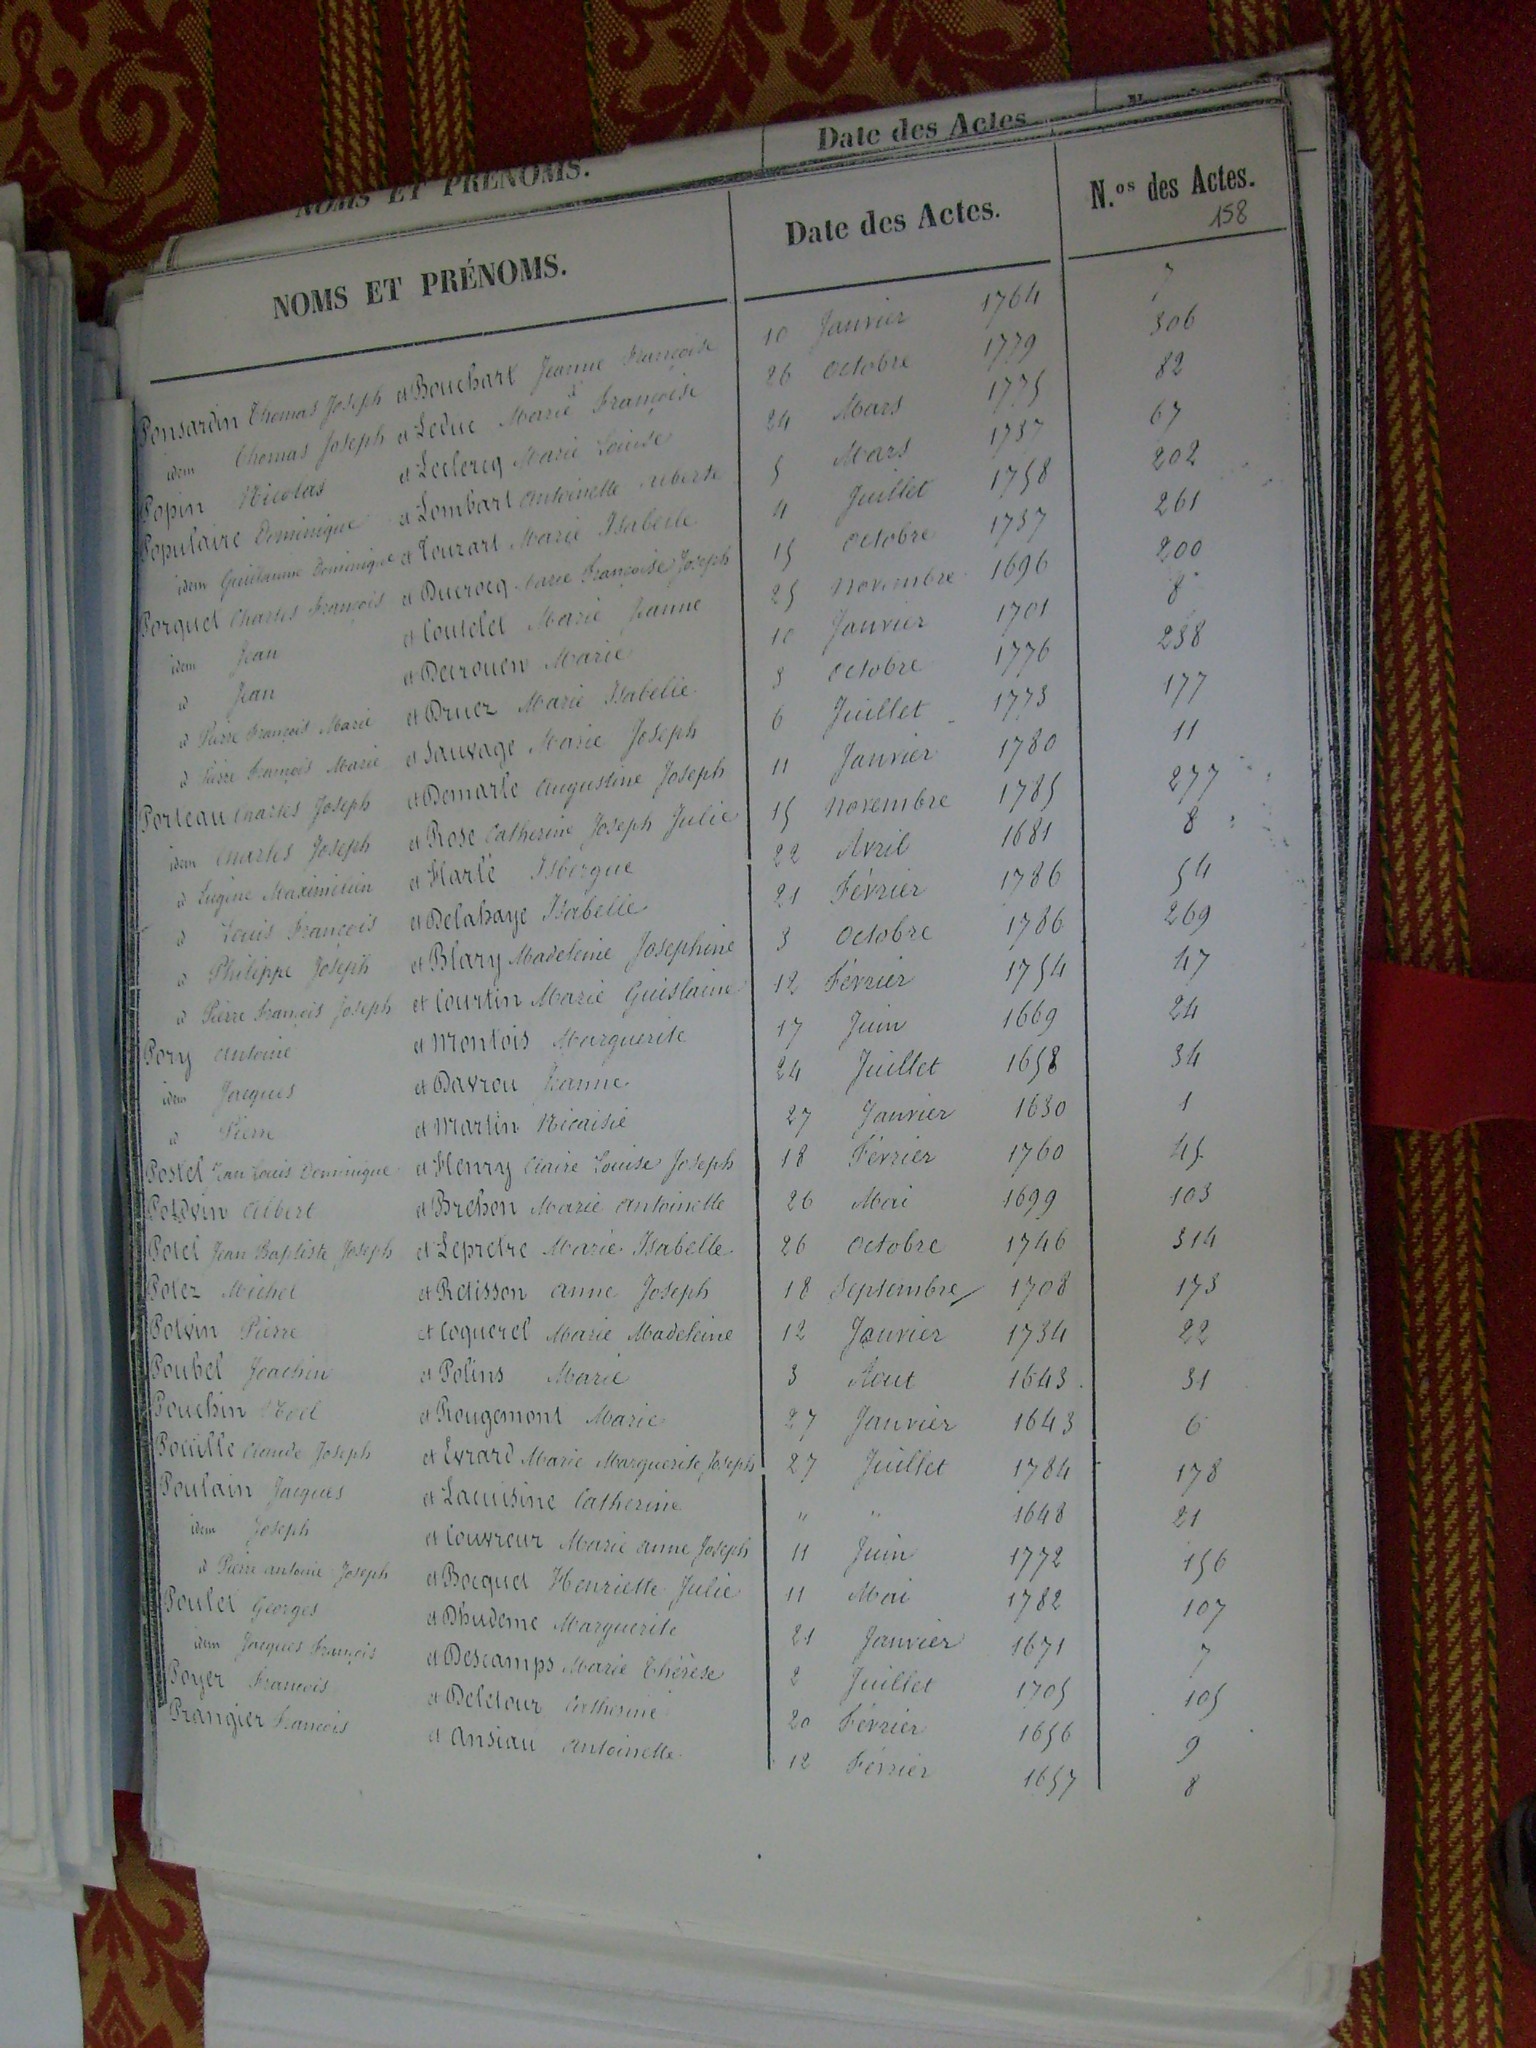 Date des Actes
NOMS ET PRÉNOMS.
NOMS ET PRÉNOMS. Date des Actes. N.os des Actes.
158
Ponsardin Thomas Joseph et Bouchart Jeanne Françoise 10 Janvier 1764 7
idem Thomas Joseph et Leduc Marie Françoise 26 Octobre 1779 306
Popin Nicolas et Leclercq Marie Louise 24 Mars 1775 82
Populaire Dominique et Lombart Antoinette Uberte 5 Mars 1737 67
idem Guillaume Dominique et Touzart Marie Isabelle 4 Juillet 1758 202
Porquet Charles François et Ducrocq Marie Françoise Joseph 15 Octobre 1737 261
idem Jean et Coutelet Marie Jeanne 25 Novembre 1696 200
d Jean et Decrouen Marie 10 Janvier 1701 8
d Pierre François Marie et Druez Marie Isabelle 3 Octobre 1776 238
d Pierre François Marie et Sauvage Marie Joseph 6 Juillet 1773 177
Porteau Charles Joseph et Demarle Augustine Joseph 11 Janvier 1780 11
idem Charles Joseph et Rose Catherine Joseph Julie 15 Novembre 1785 277
d Eugène Maximilien et Harlé Isbergue 22 Avril 1681 8
d Louis François et Delahaye Isabelle 21 Février 1786 54
d Philippe Joseph et Blary Madeleine Josephine 3 Octobre 1786 269
d Pierre François Joseph et Courtin Marie Guislaine 12 Février 1754 47
Pory Antoine et Montois Marguerite 17 Juin 1669 24
idem Jacques et Davrou Jeanne 24 Juillet 1658 34
d Pierre et Martin Nicaisie 27 Janvier 1630 1
Postel Jean Louis Dominique et Henry Claire Louise Joseph 18 Février 1760 45
Potdvin Albert et Brehon Marie Antoinette 26 Mai 1699 103
Potel Jean Baptiste Joseph et Lepretre Marie Isabelle 26 Octobre 1746 314
Potez Michel et Retisson Anne Joseph 18 Septembre 1708 173
Potvin Pierre et Coquerel Marie Madeleine 12 Janvier 1734 22
Poubel Joachin et Polins Marie 3 Aout 1643 31
Pouchin Noël et Rougemont Marie 27 Janvier 1643 6
Pouille Claude Joseph et Evrard Marie Marguerite Joseph 27 Juillet 1784 178
Poulain Jacques et Lacuisine Catherine " " 1648 21
idem Joseph et Couvreur Marie Anne Joseph 11 Juin 1772 156
d Pierre Antoine Joseph et Bocquet Henriette Julie 11 Mai 1782 107
Poulet Georges et Dhudeme Marguerite 21 Janvier 1671 7
idem Jacques François et Descamps Marie Thérèse 2 Juillet 1705 105
Poyer François et Deletour Catherine 20 Février 1656 9
Prangier François et Ansiau Antoinette 12 Février 1657 8